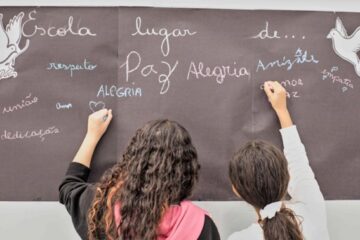 Escola lugar de...
respeito Paz Alegria Amizade
união ama ALEGRIA amor Paz
dedicação